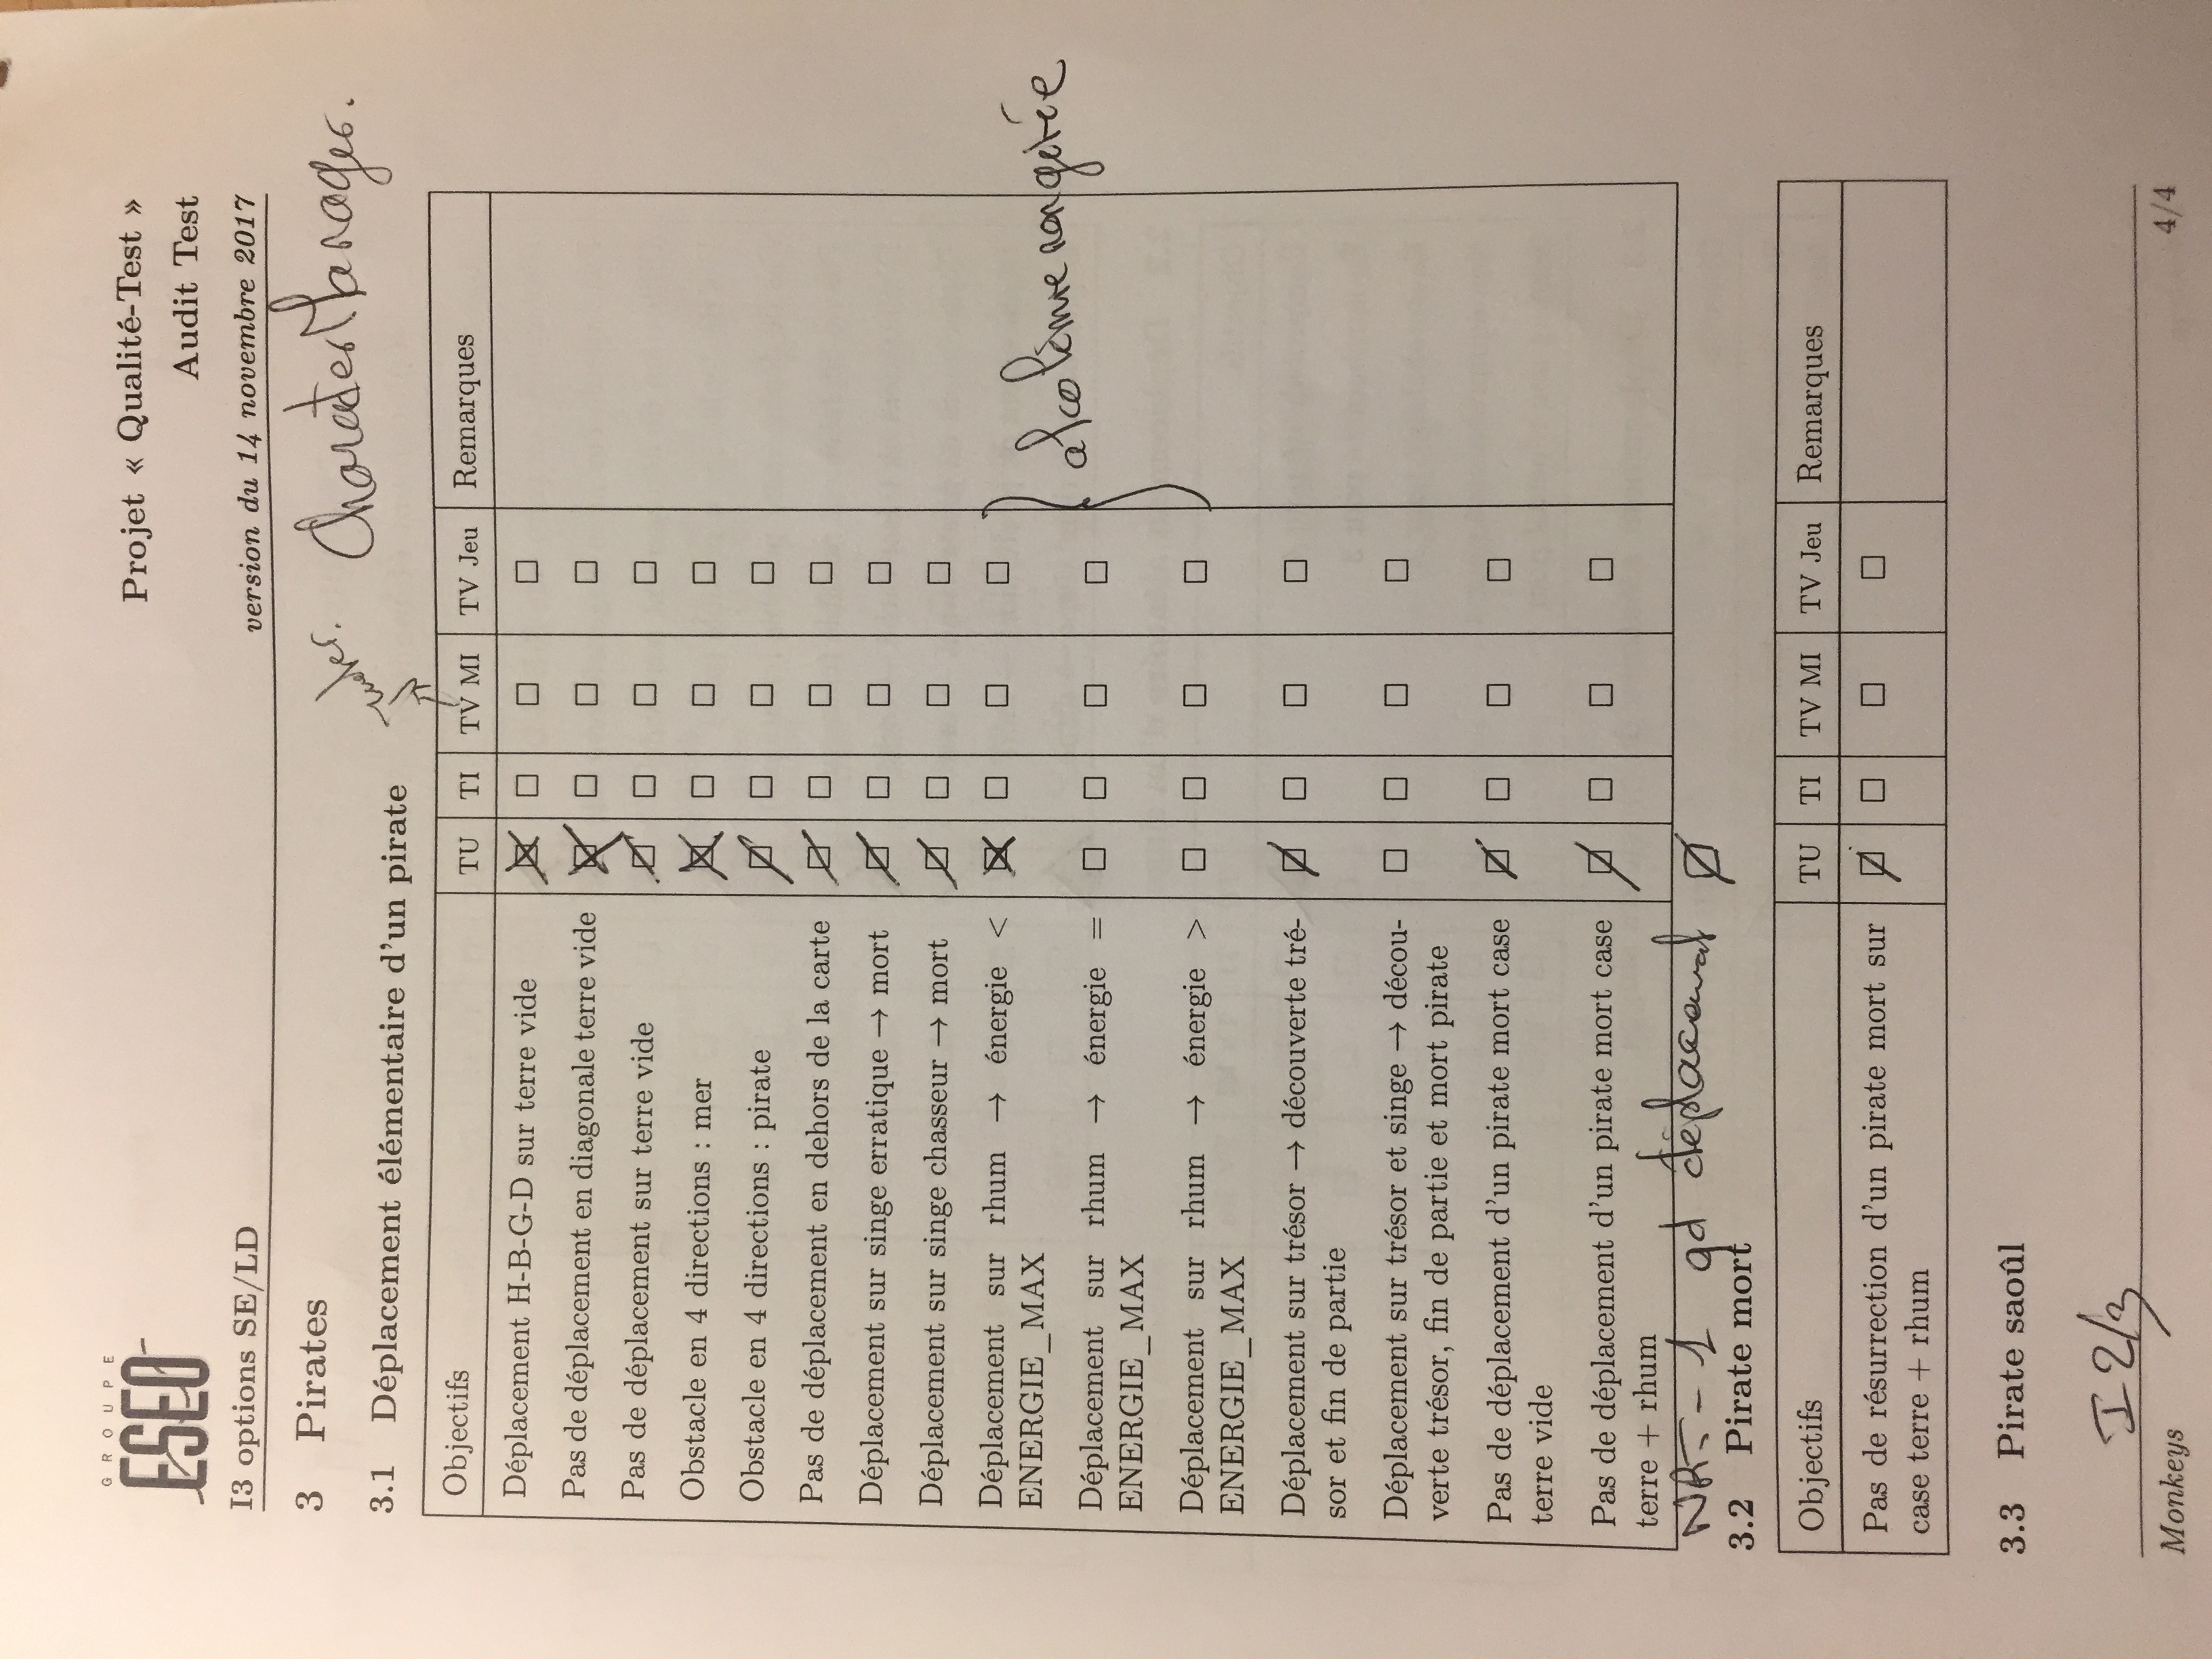 GROUPE
ESEO
Projet « Qualité-Test »
Audit Test
I3 options SE/LD
version du 14 novembre 2017
3 Pirates
CharaterManager.
3.1 Déplacement élémentaire d'un pirate
Objectifs TU TI TV MI TV Jeu Remarques
Déplacement H-B-G-D sur terre vide ☒ ☐ ☐ ☐
Pas de déplacement en diagonale terre vide ☒ ☐ ☐ ☐
Pas de déplacement sur terre vide ☑ ☐ ☐ ☐
Obstacle en 4 directions : mer ☒ ☐ ☐ ☐
Obstacle en 4 directions : pirate ☑ ☐ ☐ ☐
Pas de déplacement en dehors de la carte ☑ ☐ ☐ ☐
Déplacement sur singe erratique → mort ☑ ☐ ☐ ☐
Déplacement sur singe chasseur → mort ☑ ☐ ☐ ☐
Déplacement sur rhum → énergie < ☒ ☐ ☐ ☐
ENERGIE_MAX
alcolémie non gérée
Déplacement sur rhum → énergie = ☐ ☐ ☐ ☐
ENERGIE_MAX
Déplacement sur rhum → énergie > ☐ ☐ ☐ ☐
ENERGIE_MAX
Déplacement sur trésor → découverte tré- ☑ ☐ ☐ ☐
sor et fin de partie
Déplacement sur trésor et singe → décou- ☐ ☐ ☐ ☐
verte trésor, fin de partie et mort pirate
Pas de déplacement d'un pirate mort case ☑ ☐ ☐ ☐
terre vide
Pas de déplacement d'un pirate mort case ☑ ☐ ☐ ☐
terre + rhum
- 1 qd déplacement ☑
3.2 Pirate mort
Objectifs TU TI TV MI TV Jeu Remarques
Pas de résurrection d'un pirate mort sur ☑ ☐ ☐ ☐
case terre + rhum
3.3 Pirate saoûl
I 2/3
Monkeys 4/4